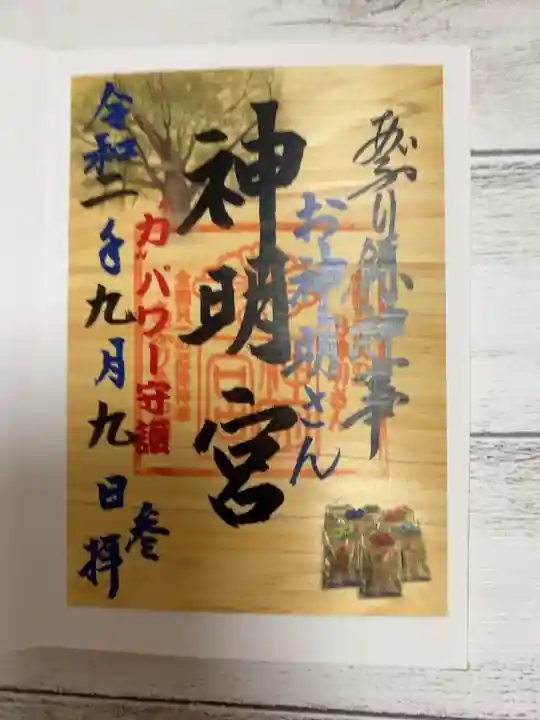 あぶり餅神事
お神明さん
神明宮
"カ"パワー守護
令和二年九月九日
参拝